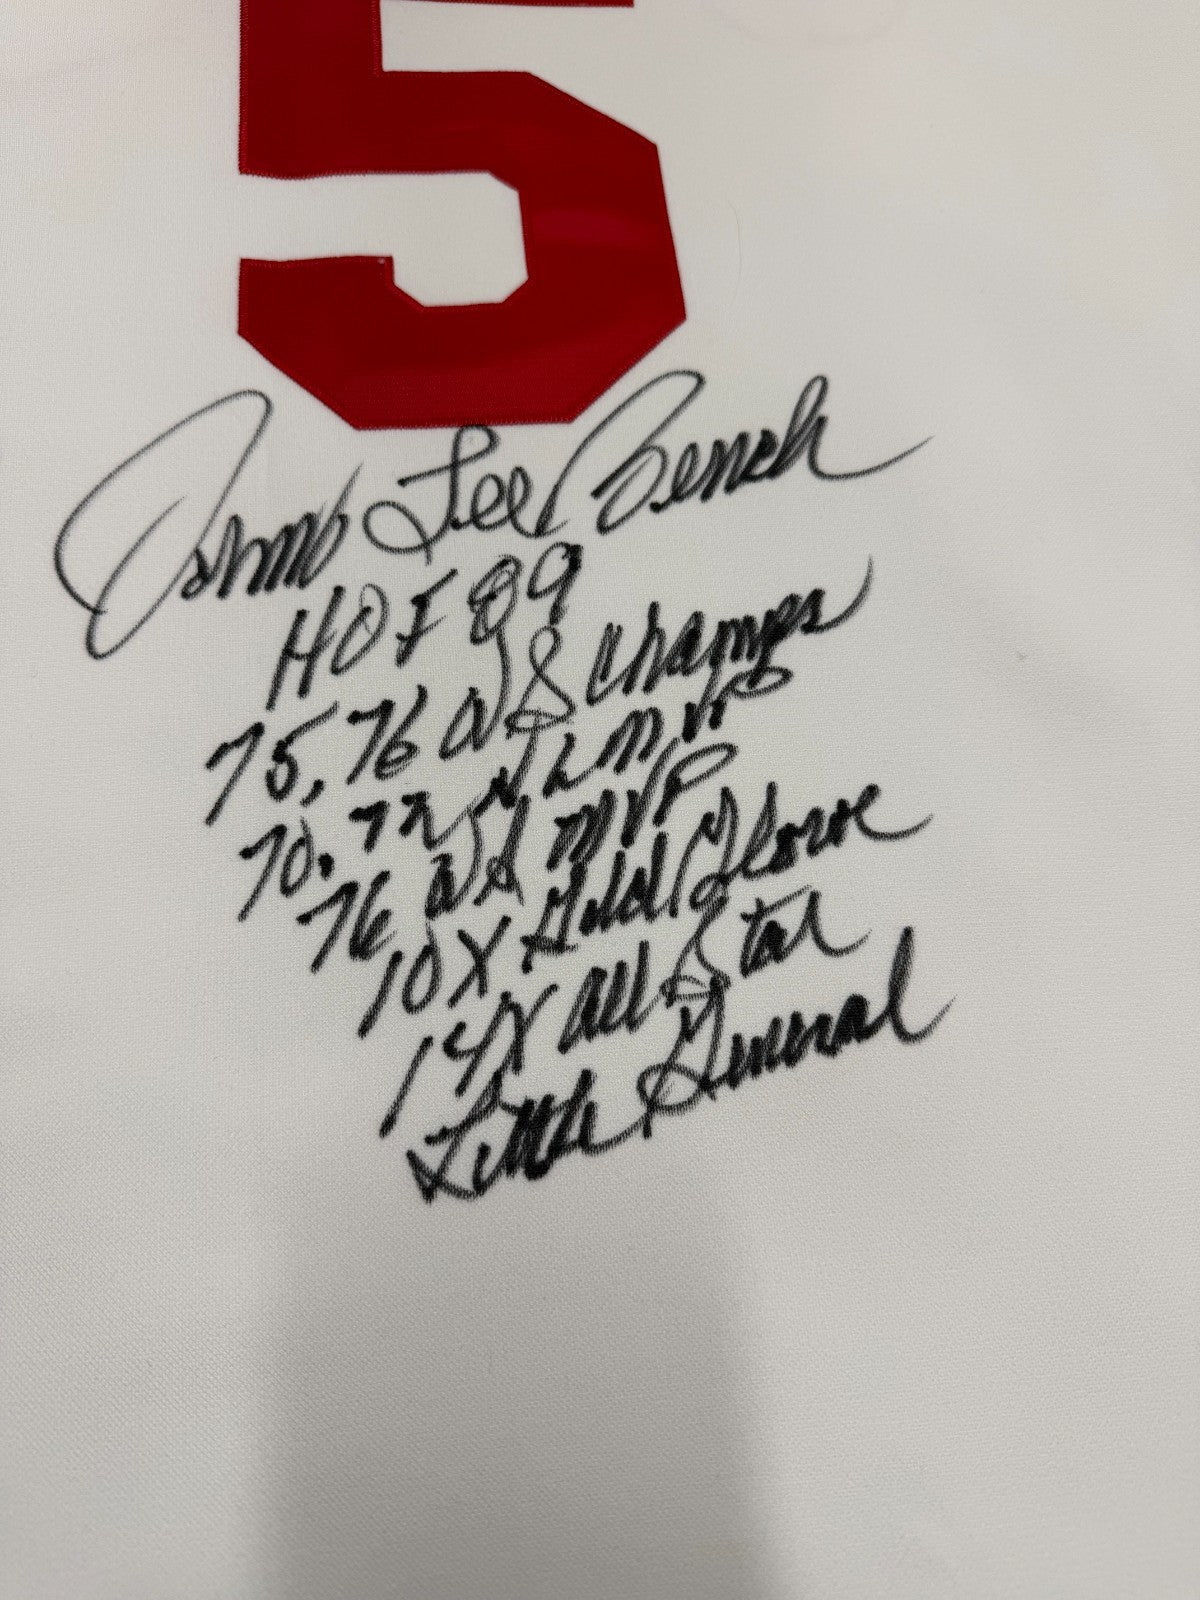 5
Johnny Lee Bench
HOF 89
75, 76 WS Champs
70, 72 NL MVP
76 WS MVP
10X Gold Glove
14X All Star
Little General